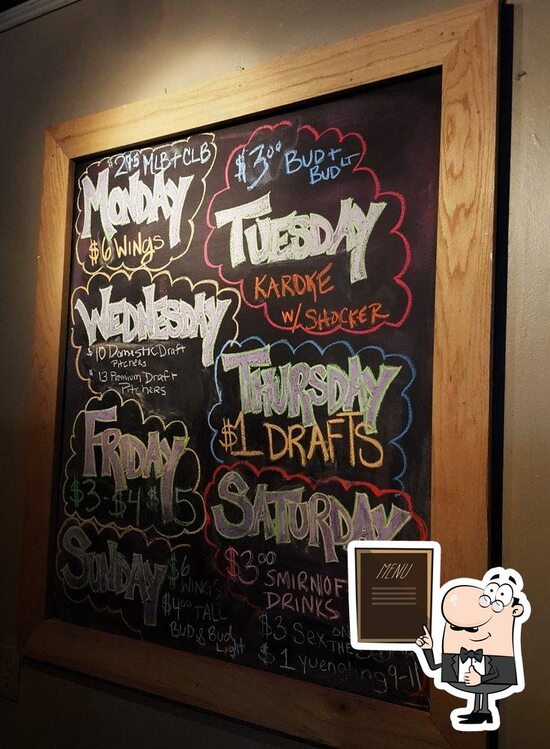 $2.95 MLB + CLB
MONDAY
$6 WINGS
$3.00 BUD +
BUD LT
TUESDAY
KAROKE
W/ SHOCKER
WEDNESDAY
$10 Domestic Draft
Pitchers
$13 Premium Draft
Pitchers
THURSDAY
$1 DRAFTS
FRIDAY
$3 - $4 $5
SATURDAY
$3.00
SMIRNOF
DRINKS
$3 Sex ON
THE
$1 yuengling 9-11
SUNDAY
$6
WINGS
$4.00 TALL
BUD & Bud
Light
MENU